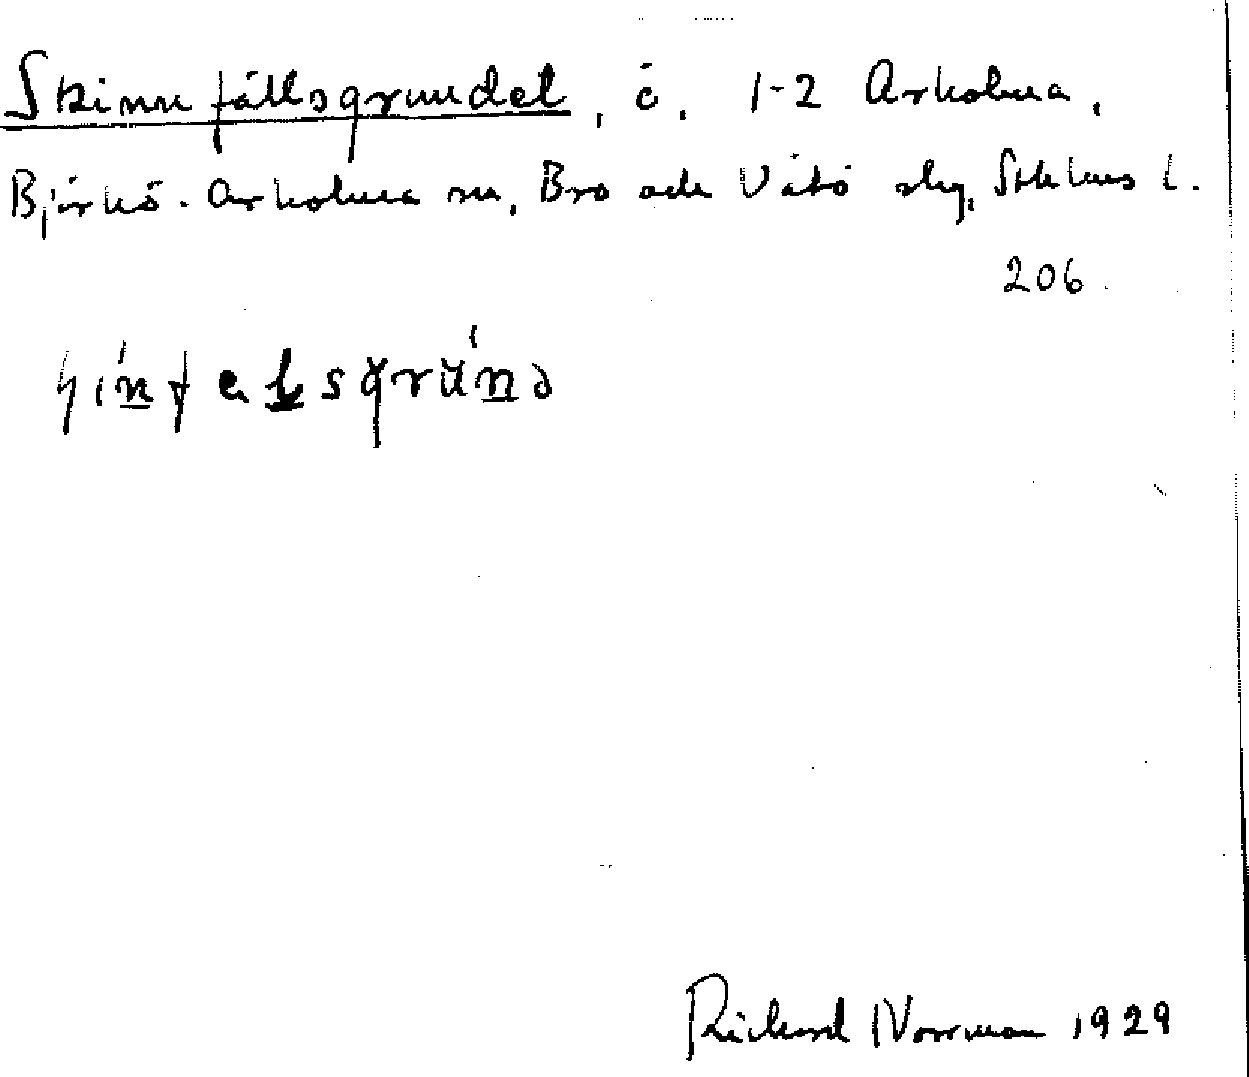 Skinnfällsgrundet, ö, 1-2 Arholma,
Björkö-Arholma sn, Bro och Vätö skg, Sthlms l.
206.
Richard Norrman 1929